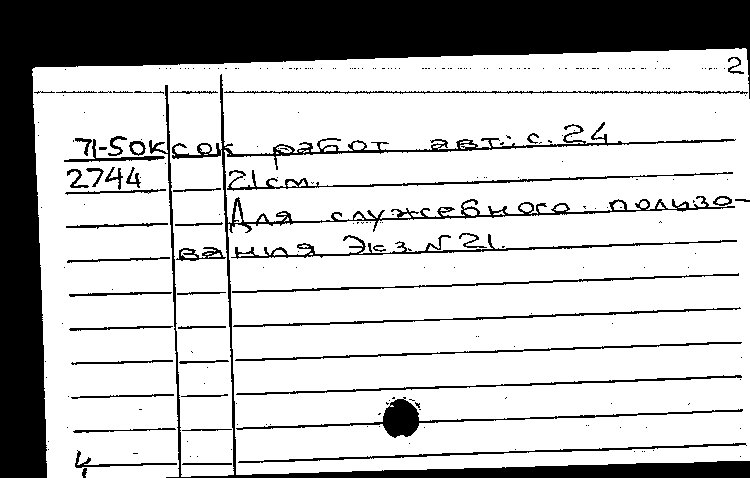 2
71-50к сок работ авт.: с. 24.
2744 21 см.
Для служебного пользо-
вания. Экз. N 21.
4